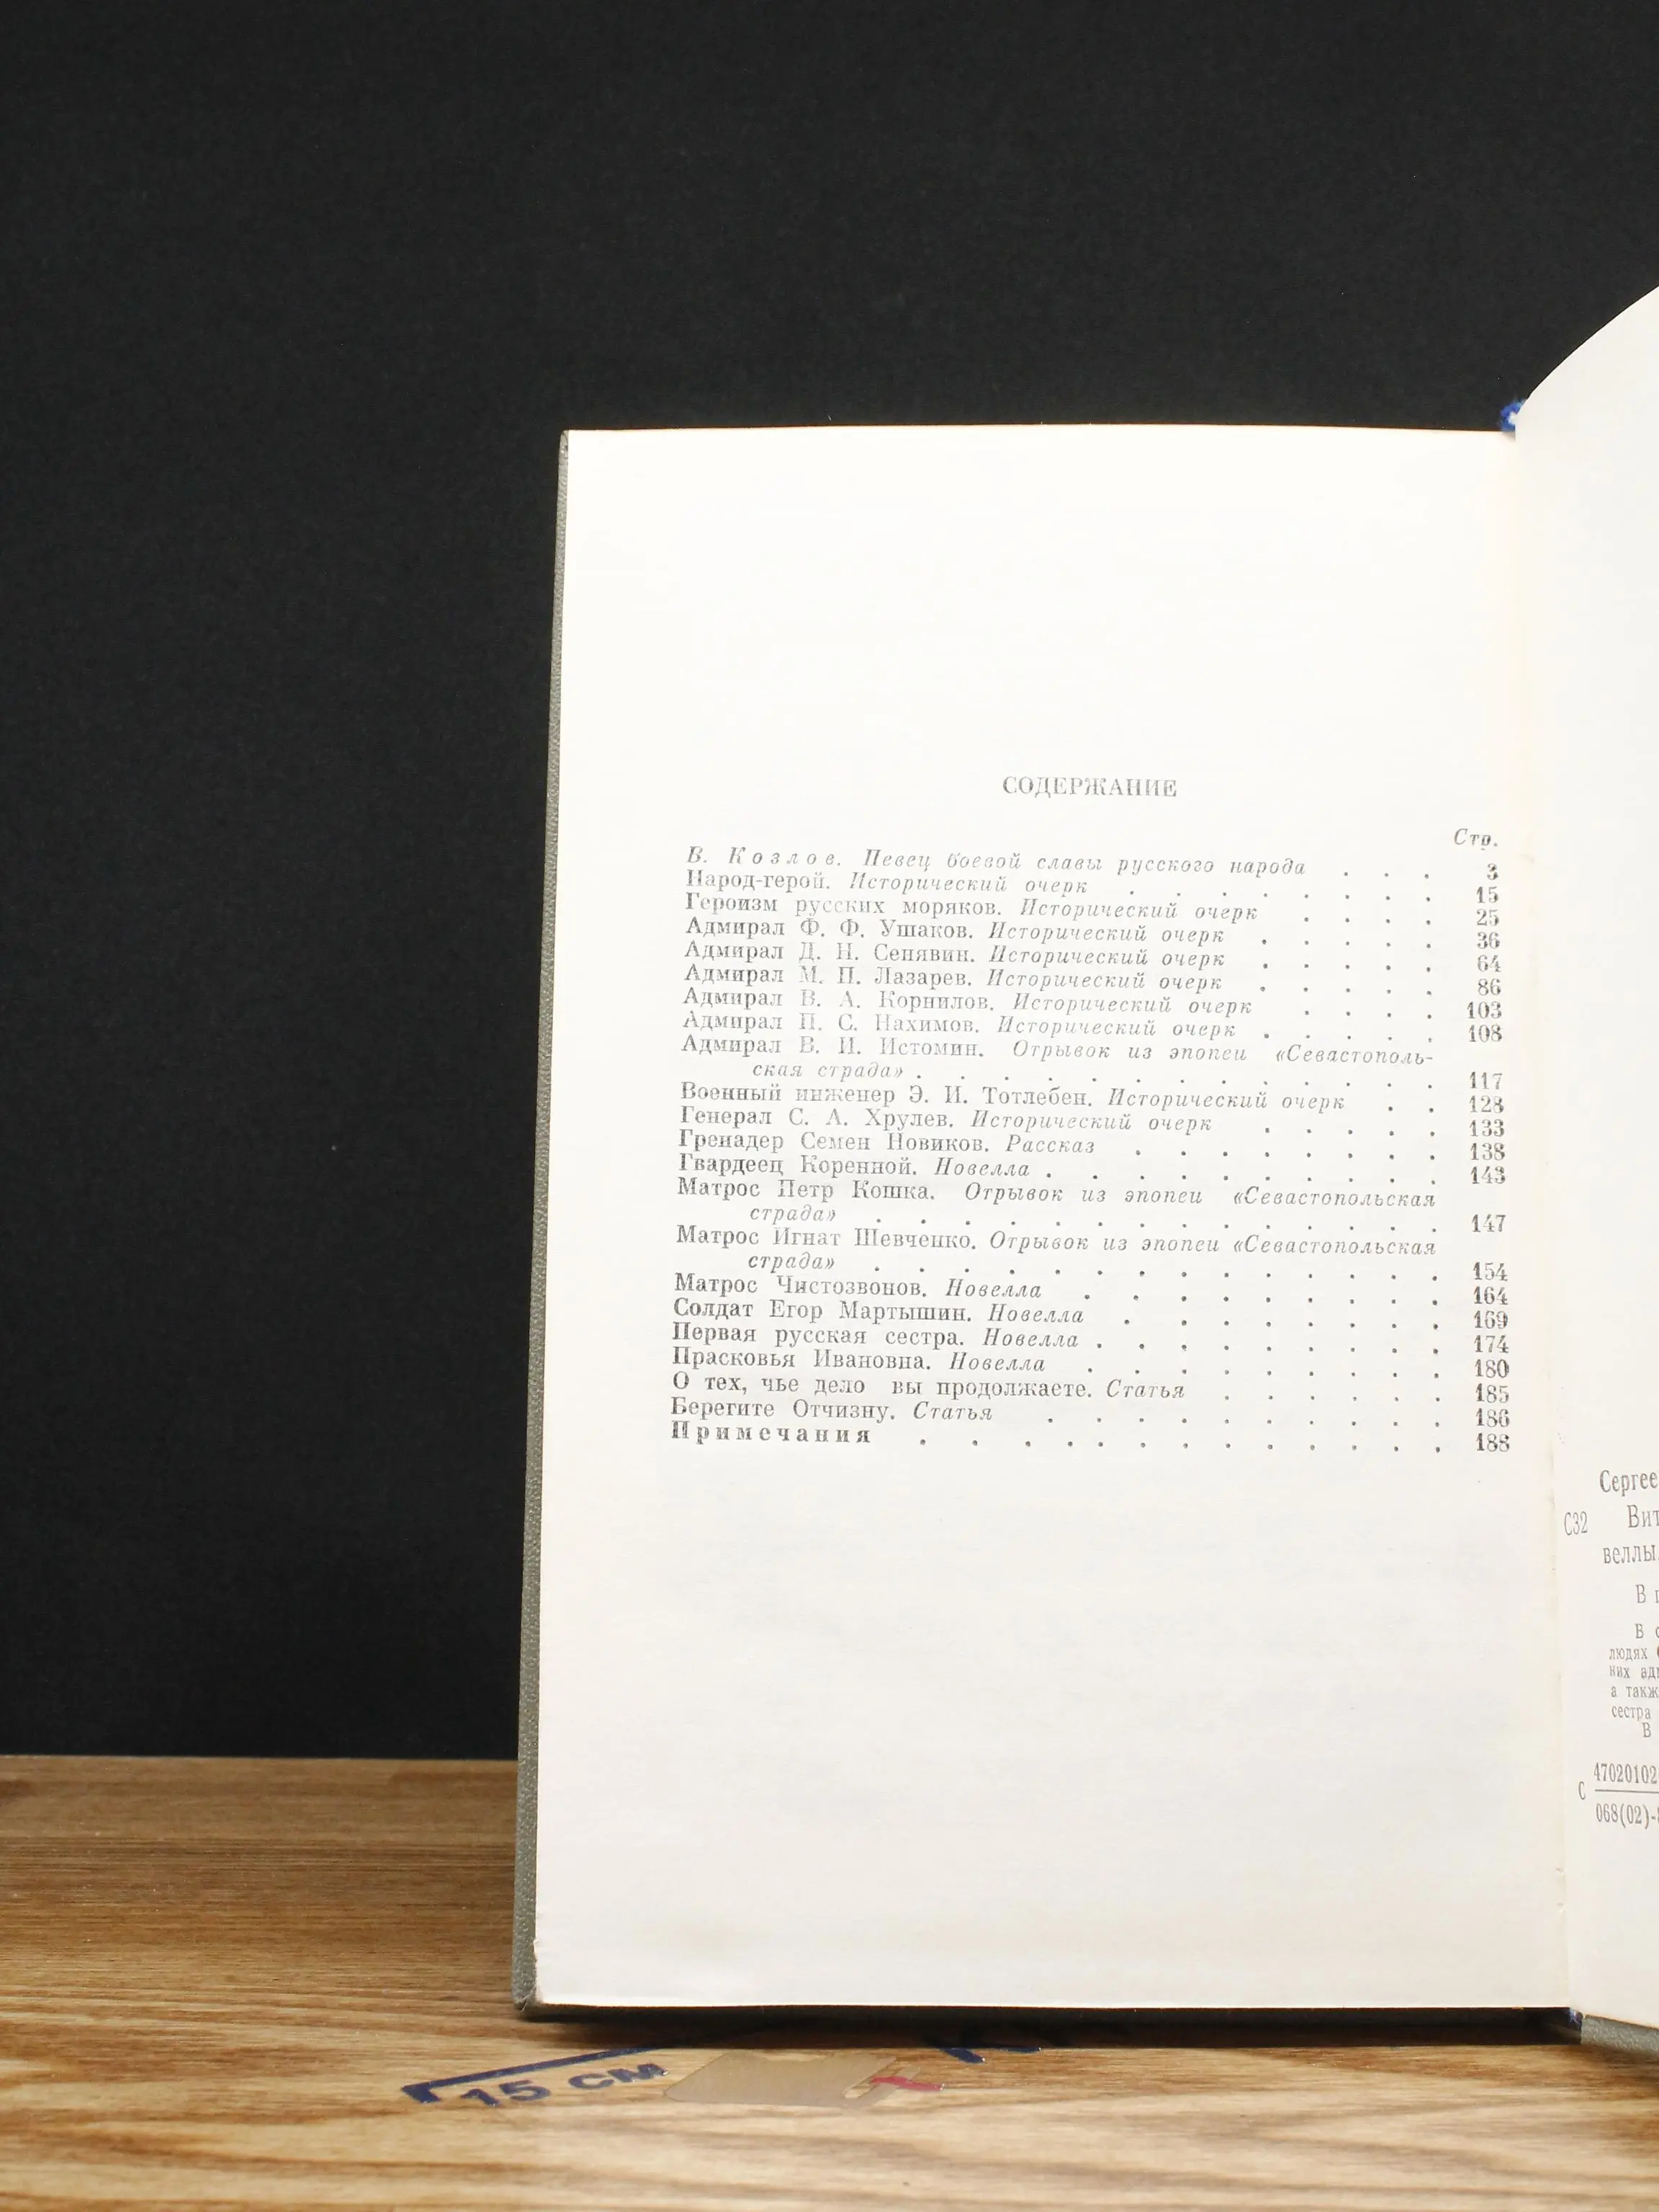 СОДЕРЖАНИЕ
Стр.
В. Козлов. Певец боевой славы русского народа . . . 3
Народ-герой. Исторический очерк . . . . . . . 15
Героизм русских моряков. Исторический очерк . . . . 25
Адмирал Ф. Ф. Ушаков. Исторический очерк . . . . . 36
Адмирал Д. Н. Сенявин. Исторический очерк . . . . . 64
Адмирал М. П. Лазарев. Исторический очерк . . . . . 86
Адмирал В. А. Корнилов. Исторический очерк . . . . 103
Адмирал П. С. Нахимов. Исторический очерк . . . . . 108
Адмирал В. И. Истомин. Отрывок из эпопеи «Севастополь-
ская страда» . . . . . . . . . . . . . 117
Военный инженер Э. И. Тотлебен. Исторический очерк . . 128
Генерал С. А. Хрулев. Исторический очерк . . . . . 133
Гренадер Семен Новиков. Рассказ . . . . . . . . 138
Гвардеец Коренной. Новелла . . . . . . . . . . 143
Матрос Петр Кошка. Отрывок из эпопеи «Севастопольская
страда» . . . . . . . . . . . . . . 147
Матрос Игнат Шевченко. Отрывок из эпопеи «Севастопольская
страда» . . . . . . . . . . . . . . 154
Матрос Чистозвонов. Новелла . . . . . . . . . 164
Солдат Егор Мартышин. Новелла . . . . . . . . 169
Первая русская сестра. Новелла . . . . . . . . . 174
Прасковья Ивановна. Новелла . . . . . . . . . 180
О тех, чье дело вы продолжаете. Статья . . . . . . 185
Берегите Отчизну. Статья . . . . . . . . . . 186
Примечания . . . . . . . . . . . . . 188
Сергее
С32 Вит
веллы.
В
В
людях
них
а такж
сестра
В
С 47020102
068(02)-
15 СМ